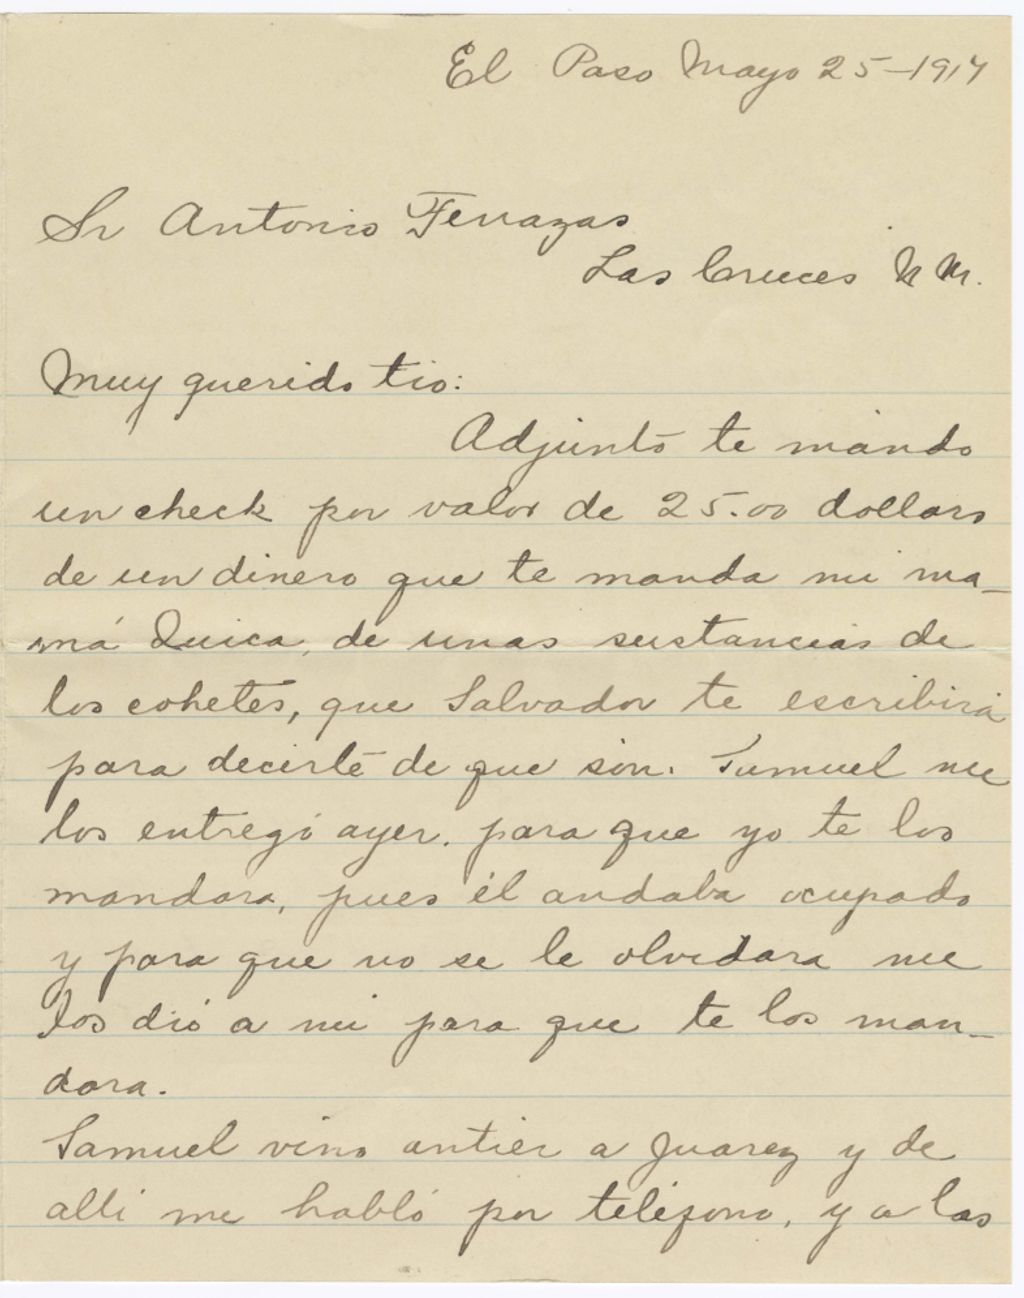 El Paso Mayo 25-1917
Sr Antonio Terrazas
Las Cruces N M.
Muy querido tio:
Adjunto te mando
un check por valor de 25.00 dollars
de un dinero que te manda mi ma-
má Quica, de unas sustancias de
los cohetes, que Salvador te escribirá
para decirte de que son. Samuel me
los entregó ayer. para que yo te los
mandara, pues él andaba ocupado
y para que no se le olvidara me
los dió a mi para que te los man-
dara.
Samuel vino antier a Juarez y de
alli me habló por teléfono, y a las